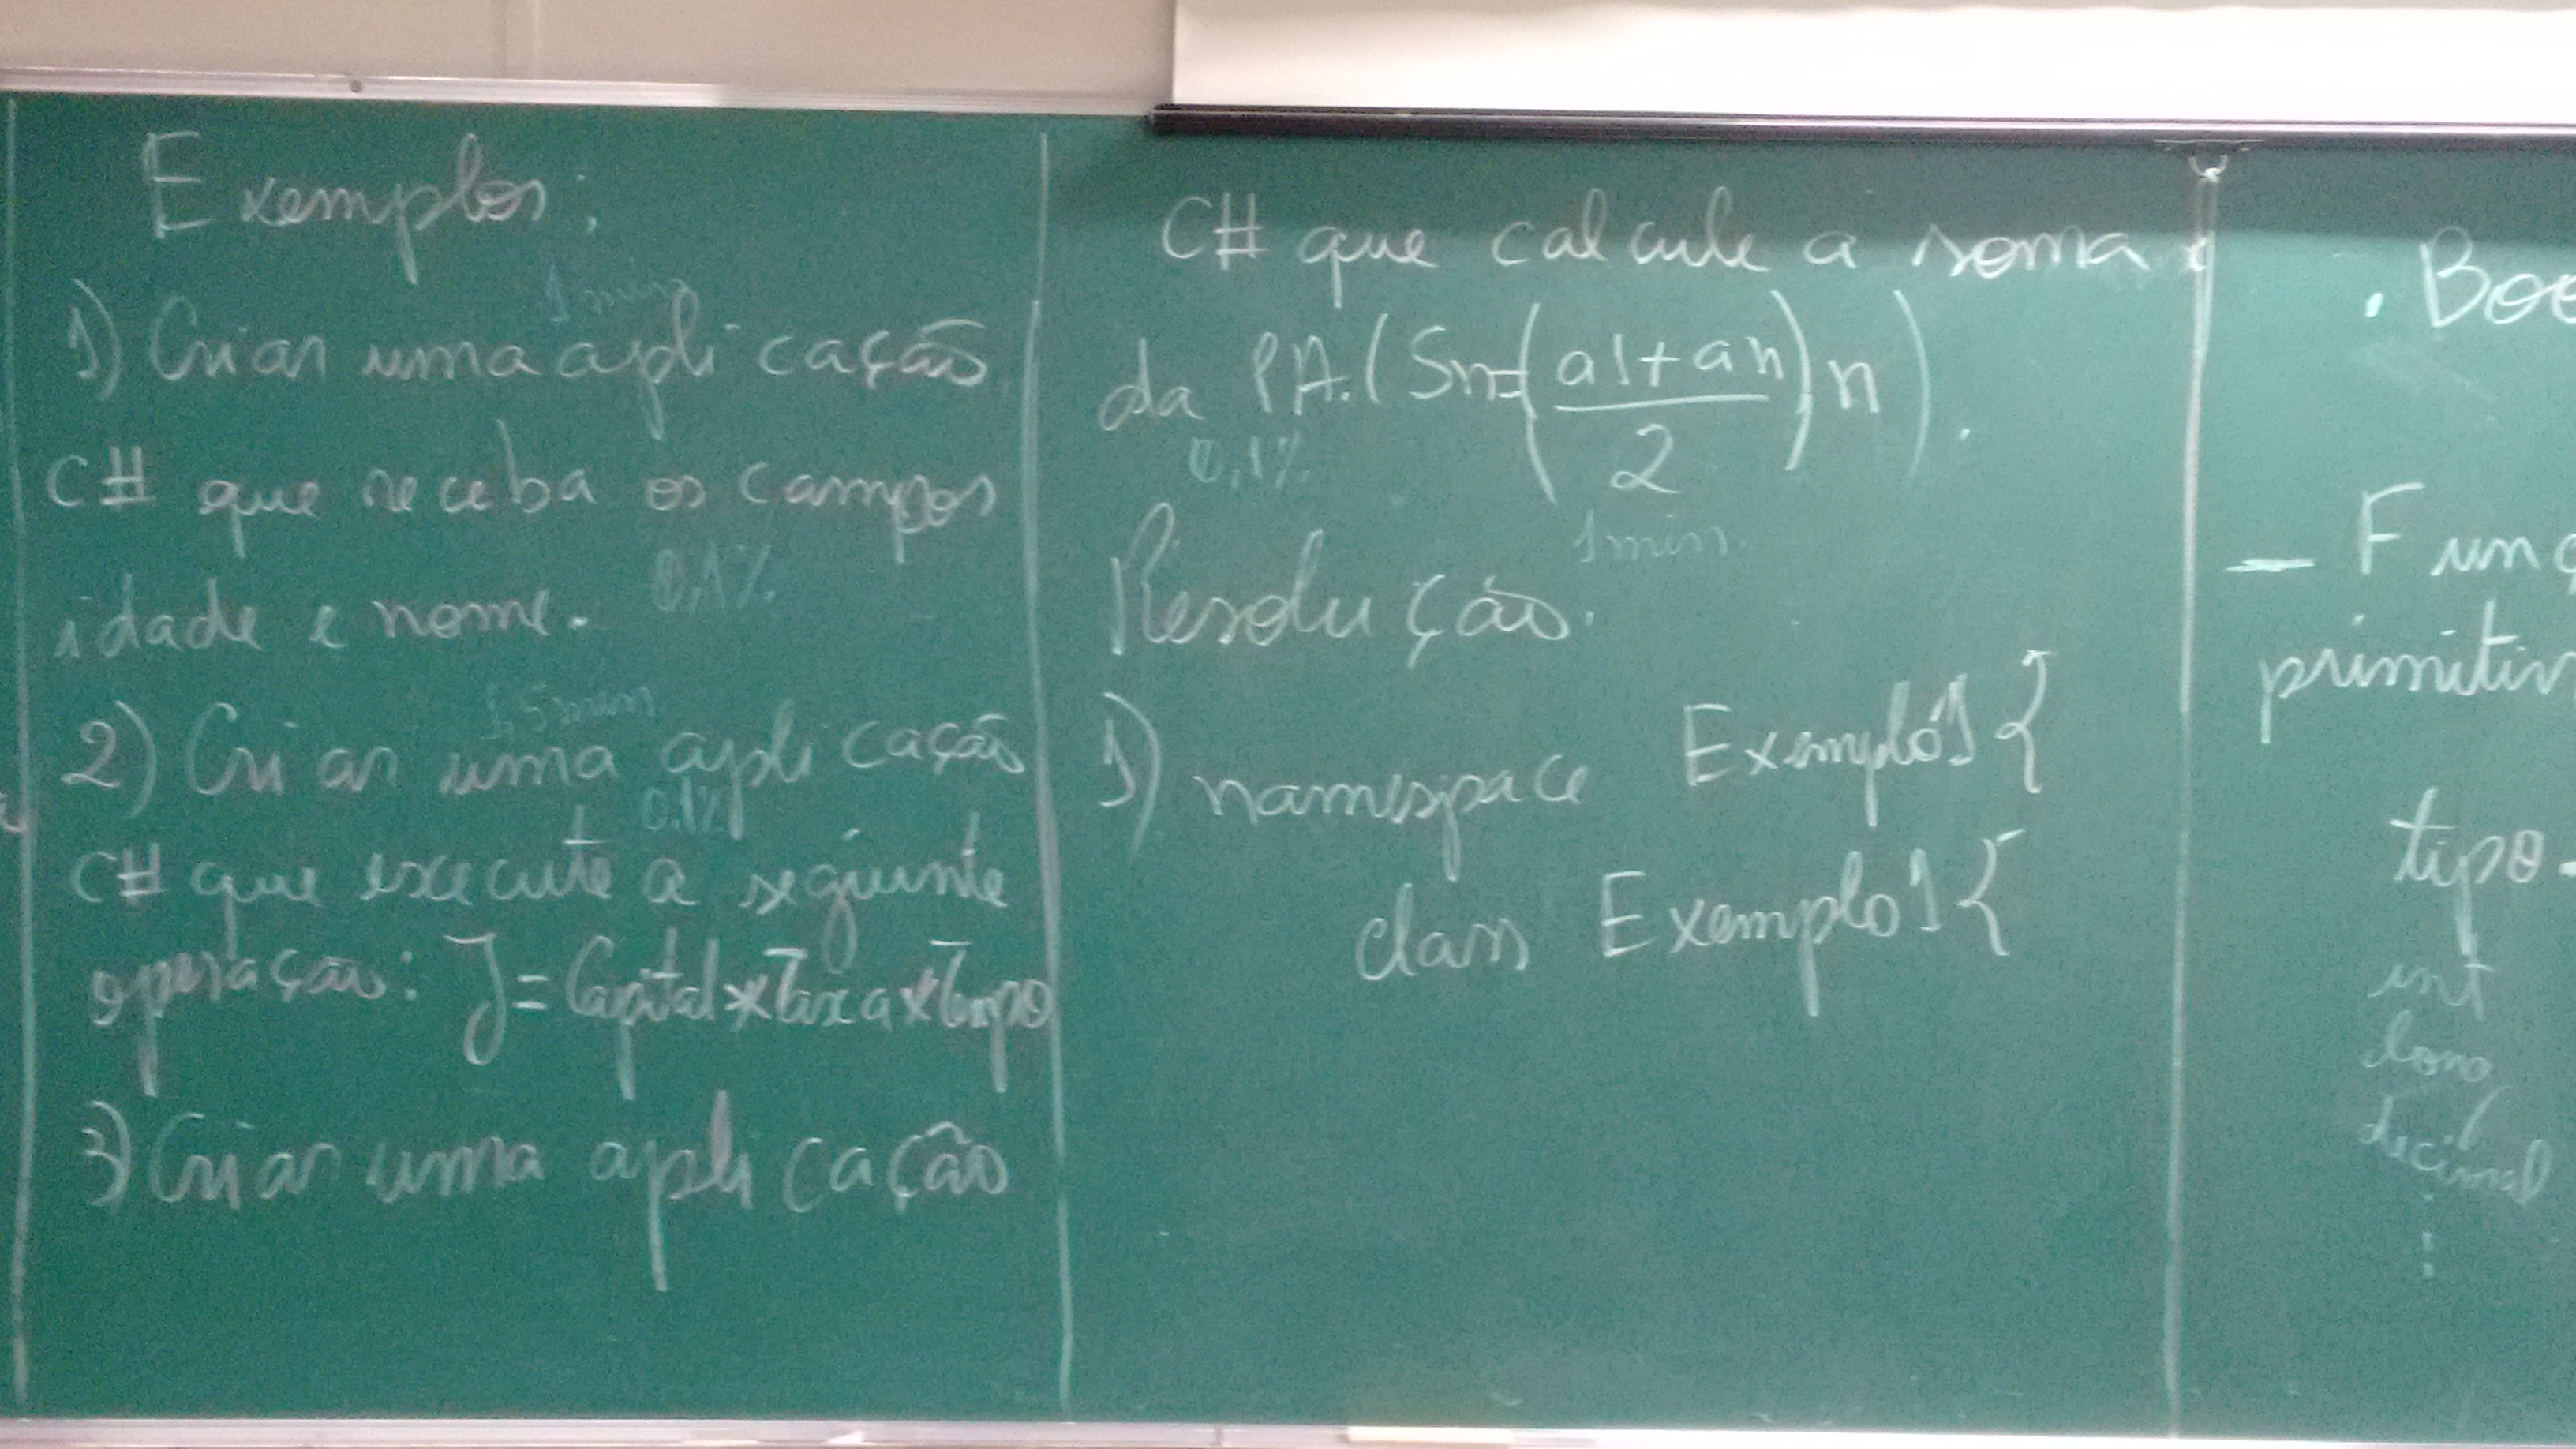 Exemplos:
1 min
1) Criar uma aplicação
C# que receba os campos
idade e nome.
0,1%
1,5 min
2) Criar uma aplicação
0,1%
C# que execute a seguinte
operação: J = Capital * Taxa * Tempo
3) Criar uma aplicação
C# que calcule a soma
da P.A. (Sn=(a1+an/2)n).
0,1%
1 min.
Resolução.
1) namespace Exemplo1 {
class Exemplo1 {
. Boo
– Funç
primitiv
tipo.
int
long
decimal
⋮